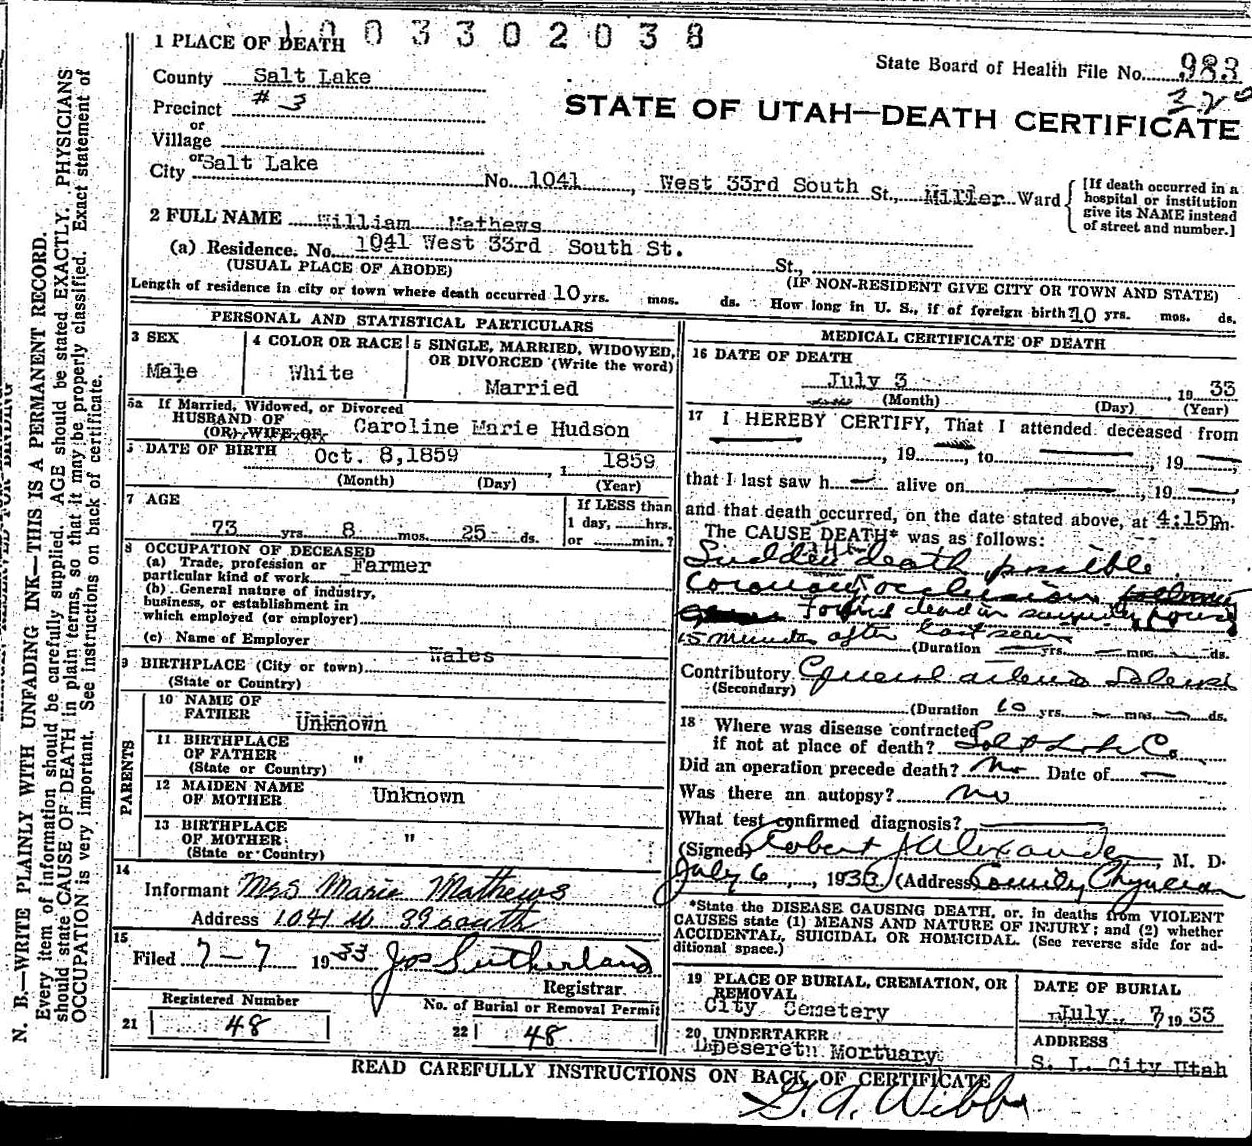 1003302038
1 PLACE OF DEATH
State Board of Health File No. 983
County Salt Lake
320
Precinct # 3
STATE OF UTAH—DEATH CERTIFICATE
or
Village
or
City Salt Lake No. 1041, West 33rd South St., Miller Ward
[If death occurred in a hospital or institution give its NAME instead of street and number.]
2 FULL NAME William Mathews
(a) Residence. No. 1041 West 33rd South St. St.,
(USUAL PLACE OF ABODE) (IF NON-RESIDENT GIVE CITY OR TOWN AND STATE)
Length of residence in city or town where death occurred 10 yrs. mos. ds. How long in U. S., if of foreign birth? 10 yrs. mos. ds.
PERSONAL AND STATISTICAL PARTICULARS
3 SEX
Male
4 COLOR OR RACE
White
5 SINGLE, MARRIED, WIDOWED,
OR DIVORCED (Write the word)
Married
5a If Married, Widowed, or Divorced
HUSBAND OF
(OR) WIFE OF Caroline Marie Hudson
DATE OF BIRTH Oct. 8,1859, 1 1859
(Month) (Day) (Year)
7 AGE
73 yrs. 8 mos. 25 ds.
If LESS than
1 day, hrs.
or min.?
8 OCCUPATION OF DECEASED
(a) Trade, profession or
particular kind of work Farmer
(b) General nature of industry,
business, or establishment in
which employed (or employer)
(c) Name of Employer
9 BIRTHPLACE (City or town) Wales
(State or Country)
PARENTS
10 NAME OF
FATHER Unknown
11 BIRTHPLACE
OF FATHER "
(State or Country)
12 MAIDEN NAME
OF MOTHER Unknown
13 BIRTHPLACE
OF MOTHER "
(State or Country)
14
Informant Mrs Marie Mathews
Address 1041 W. 39 South
15
Filed 7-7 1933 Jos Sutherland
Registrar.
Registered Number
21 48
No. of Burial or Removal Permit
22 48
MEDICAL CERTIFICATE OF DEATH
16 DATE OF DEATH
July 3, 19 33
(Month) (Day) (Year)
17 I HEREBY CERTIFY, That I attended deceased from
, 19 , to , 19
that I last saw h alive on , 19
and that death occurred, on the date stated above, at 4:15 m.
The CAUSE DEATH* was as follows:
Sudden death possible
coronary occlusion
Found dead in house
15 minutes after last seen
(Duration yrs. mos. ds.
Contributory General arterio Sclerosis
(Secondary)
(Duration 10 yrs. mos. ds.
18 Where was disease contracted
if not at place of death? Salt Lake Co
Did an operation precede death? No Date of
Was there an autopsy? no
What test confirmed diagnosis?
(Signed) Robert J Alexander, M. D.
July 6, 1933 (Address County Physician
*State the DISEASE CAUSING DEATH, or, in deaths from VIOLENT
CAUSES state (1) MEANS AND NATURE OF INJURY; and (2) whether
ACCIDENTAL, SUICIDAL OR HOMICIDAL. (See reverse side for ad-
ditional space.)
19 PLACE OF BURIAL, CREMATION, OR
REMOVAL
City Cemetery
DATE OF BURIAL
July 7 19 33
20 UNDERTAKER
Deseret Mortuary
ADDRESS
S. L. City Utah
READ CAREFULLY INSTRUCTIONS ON BACK OF CERTIFICATE
N. B.—WRITE PLAINLY WITH UNFADING INK—THIS IS A PERMANENT RECORD.
Every item of information should be carefully supplied. AGE should be stated EXACTLY. PHYSICIANS
should state CAUSE OF DEATH in plain terms, so that it may be properly classified. Exact statement of
OCCUPATION is very important. See instructions on back of certificate.